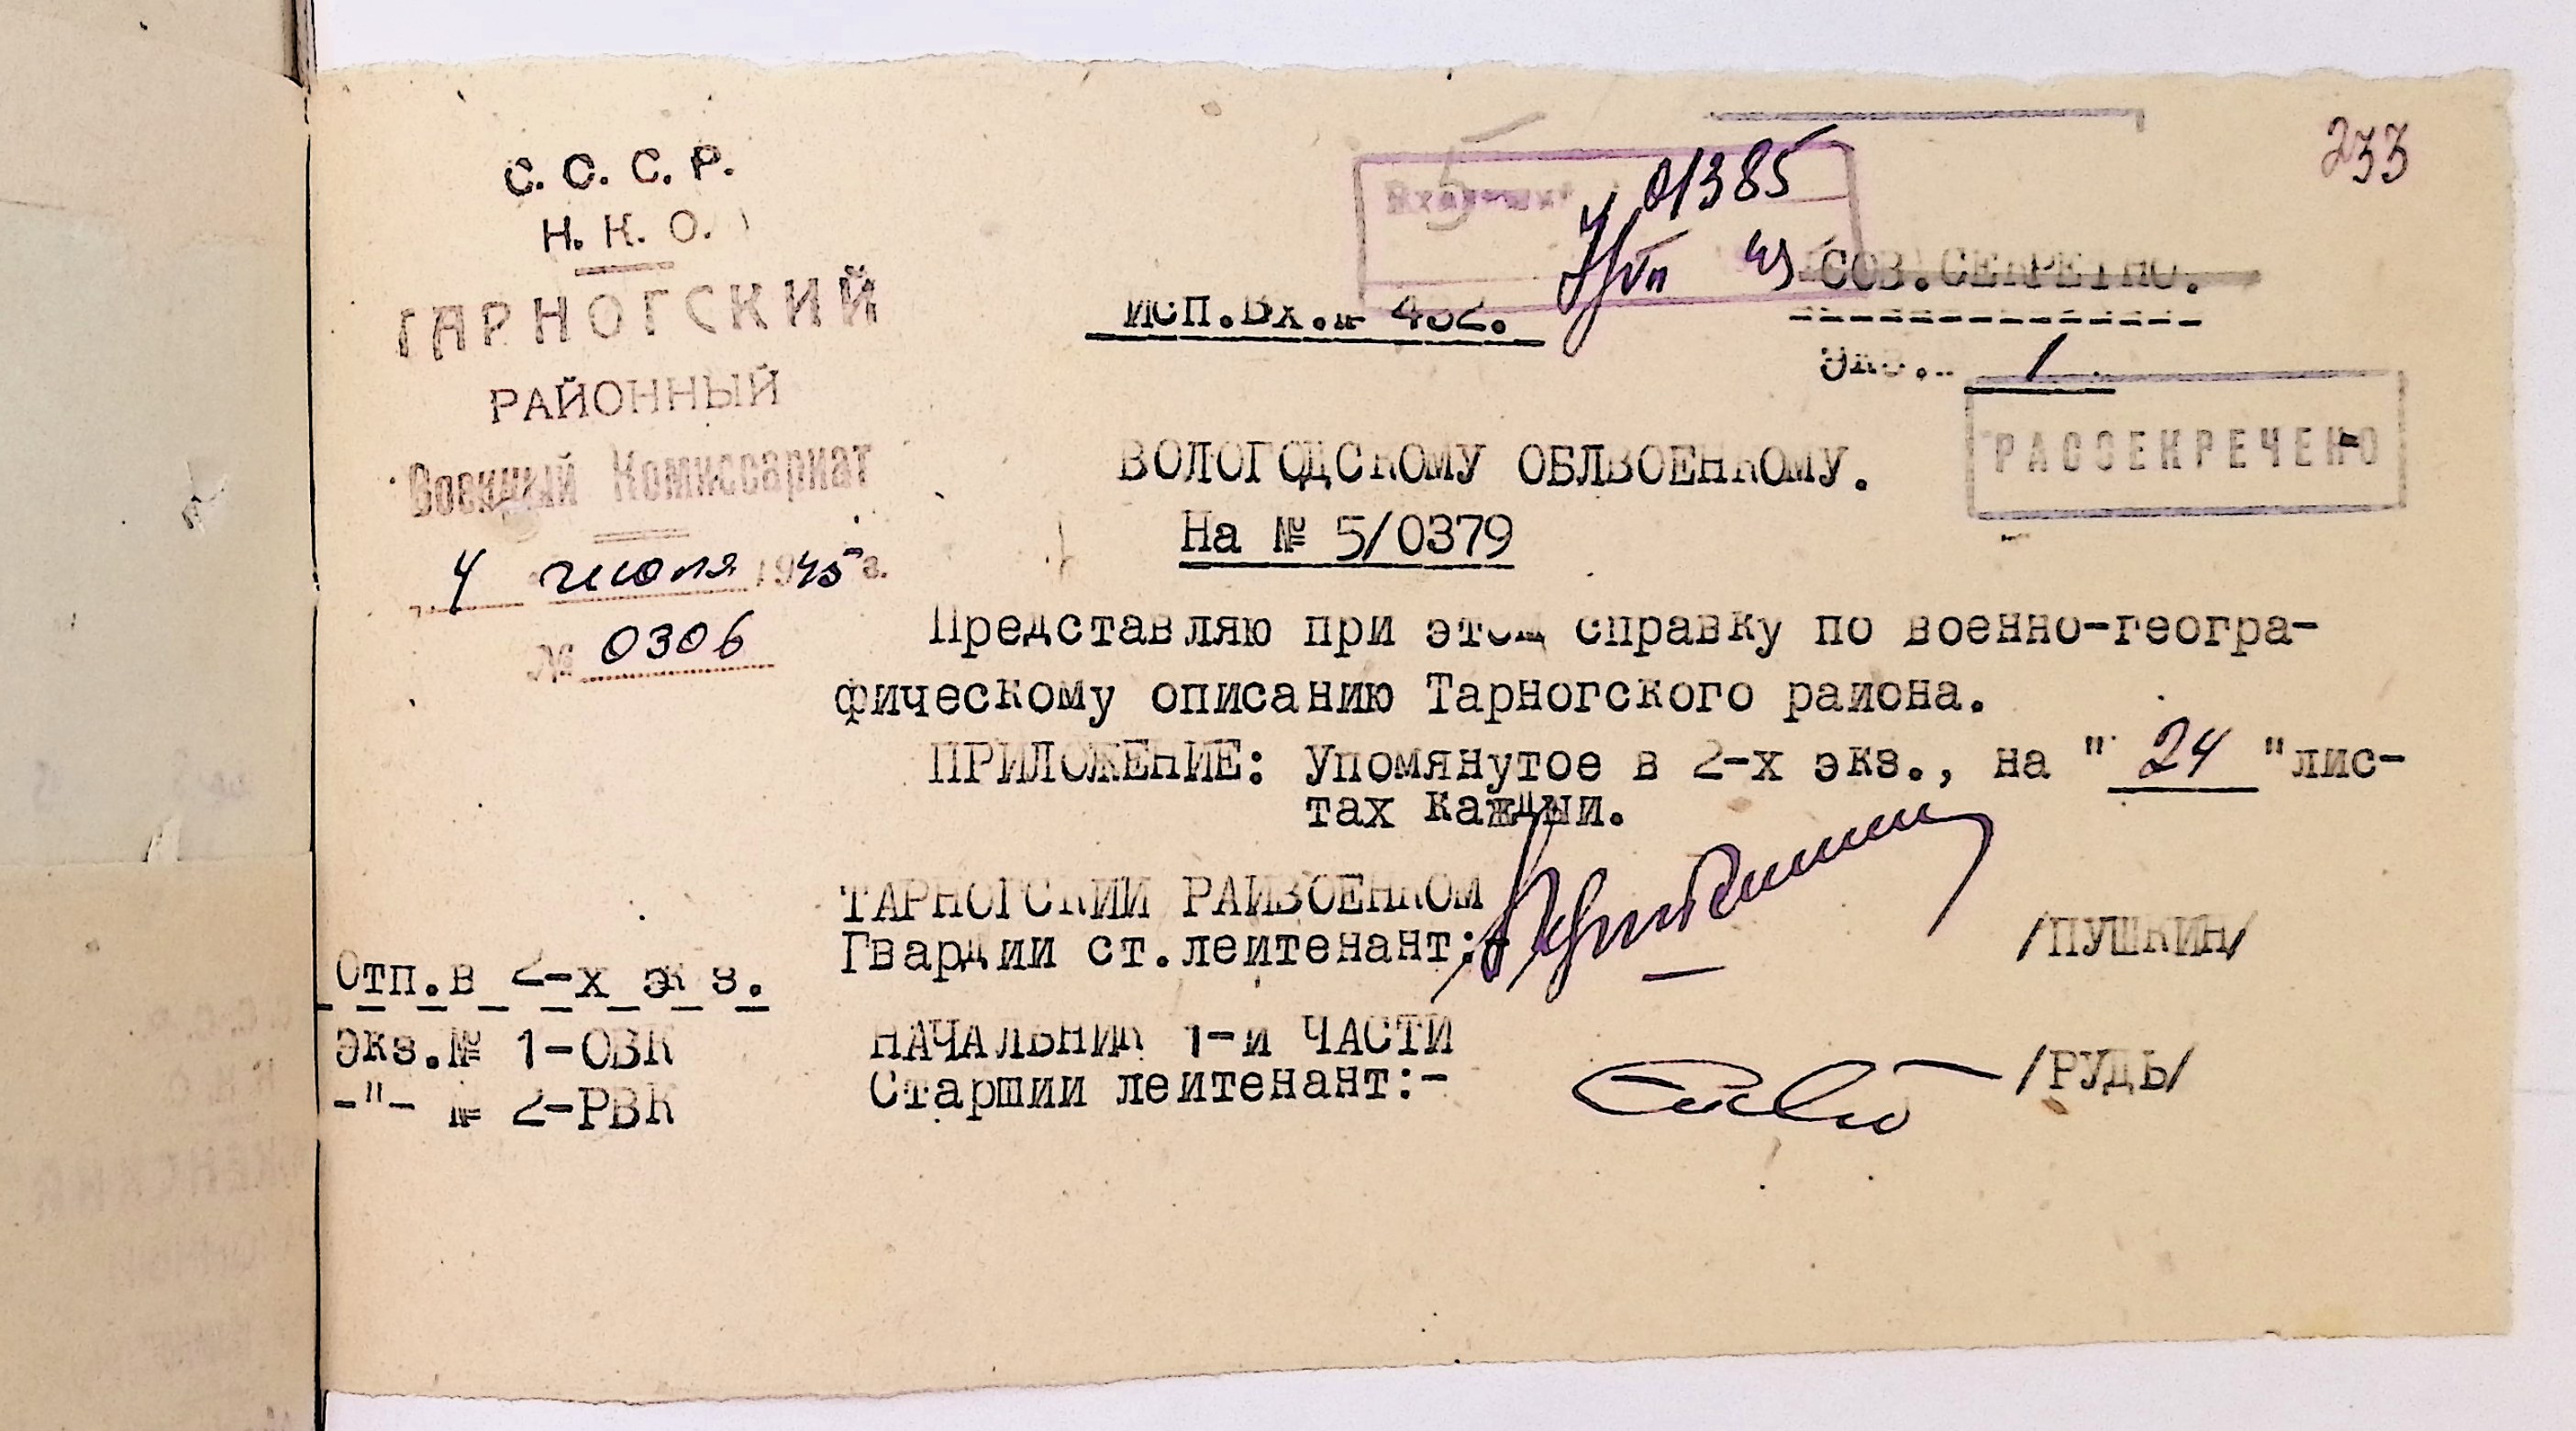 233
С. С. С. Р.
Н. К. О.
ТАРНОГСКИЙ
РАЙОННЫЙ
Военный Комиссариат
4 июля 1945 г.
№ 0306
01385
исп.Вх.№ 432.
СОВ.СЕКРЕТНО.
Экз.. 1
РАССЕКРЕЧЕНО
ВОЛОГОДСКОМУ ОБЛВОЕНКОМУ.
На № 5/0379
Представляю при этом справку по военно-геогра-
фическому описанию Тарногского района.
ПРИЛОЖЕНИЕ: Упомянутое в 2-х экз., на " 24 "лис-
тах каждый.
ТАРНОГСКИЙ РАЙВОЕНКОМ
Гвардии ст.лейтенант:-
/ПУШКИН/
НАЧАЛЬНИК 1-й ЧАСТИ
Старший лейтенант:-
/РУДЬ/
Отп.в 2-х экз.
Экз.№ 1-ОВК
-"- № 2-РВК